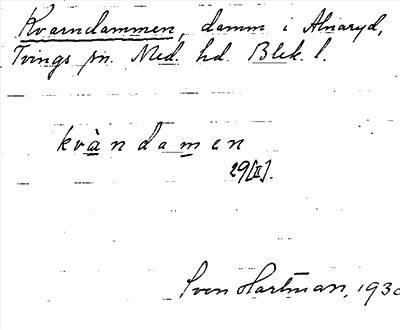 Kvarndammen, damm i Alnaryd,
Tvings sn. Med. hd. Blek. l.
kvàndamen
29[II].
Sven Hartman, 1930